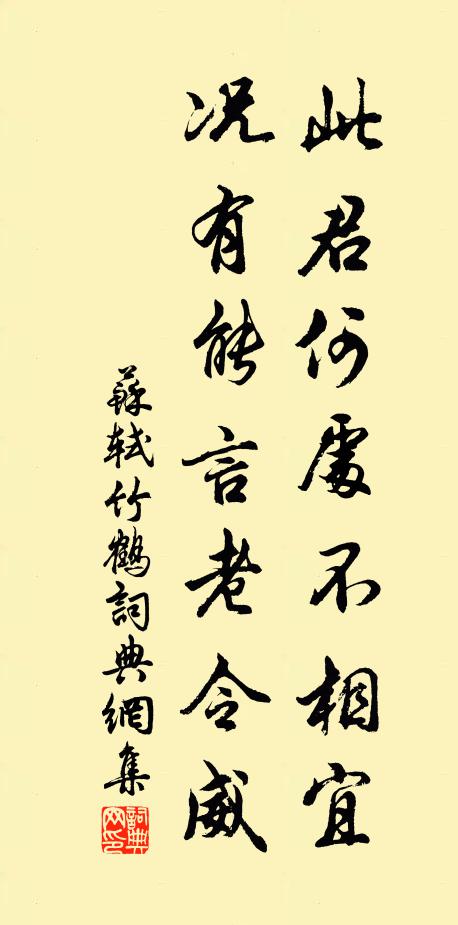 此君何處不相宜
况有能言老令威
蘇軾竹鶴詞典網集
詞典網印